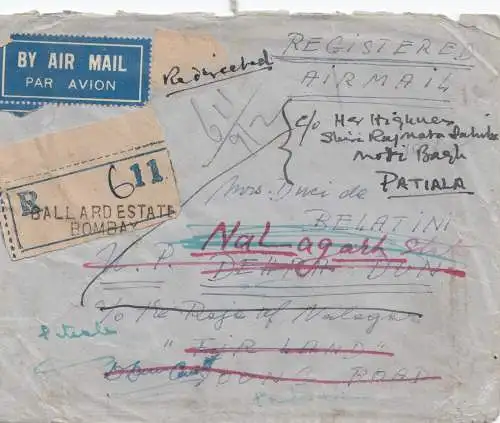 BY AIR MAIL
PAR AVION
Redirected
REGISTERED
AIRMAIL
c/o Her Highness
Shri Rajmata Sahiba
Moti Bagh
PATIALA
R 611
BALLARD ESTATE
BOMBAY
Mrs. de
BELATINI
Nalagarh State
U. P. DEHRA DUN
c/o The Raja of Nalagar
"FIR LAND"
ROAD